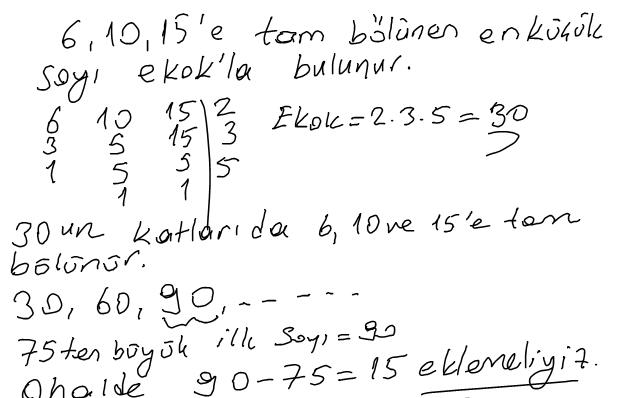 6, 10, 15'e tam bölünen en küçük
sayı ekok'la bulunur.
6 10 15 | 2 Ekok = 2.3.5 = 30
3 5 15 | 3
1 5 5 | 5
1 1
30 un katları da 6, 10 ve 15'e tam
bölünür.
30, 60, 90, ------
75 ten büyük ilk sayı = 90
O halde 90-75 = 15 eklemeliyiz.